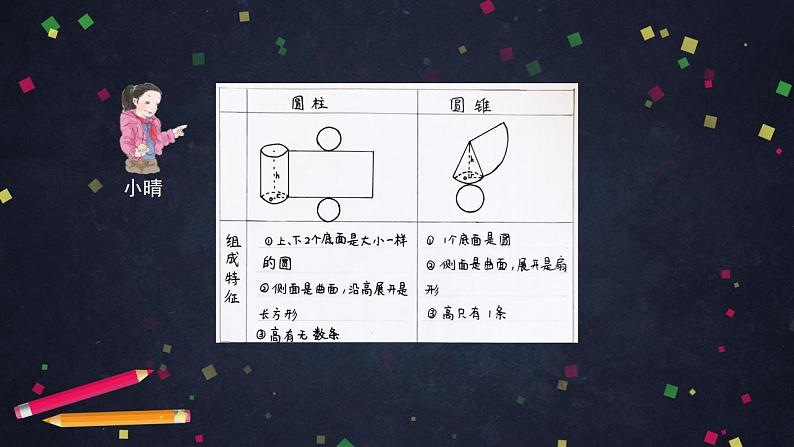 小晴
圆柱
圆锥
h
o
r
h
o
r
组成特征
①上、下2个底面是大小一样
的圆
②侧面是曲面，沿高展开是
长方形
③高有无数条
①1个底面是圆
②侧面是曲面，展开是扇
形
③高只有1条